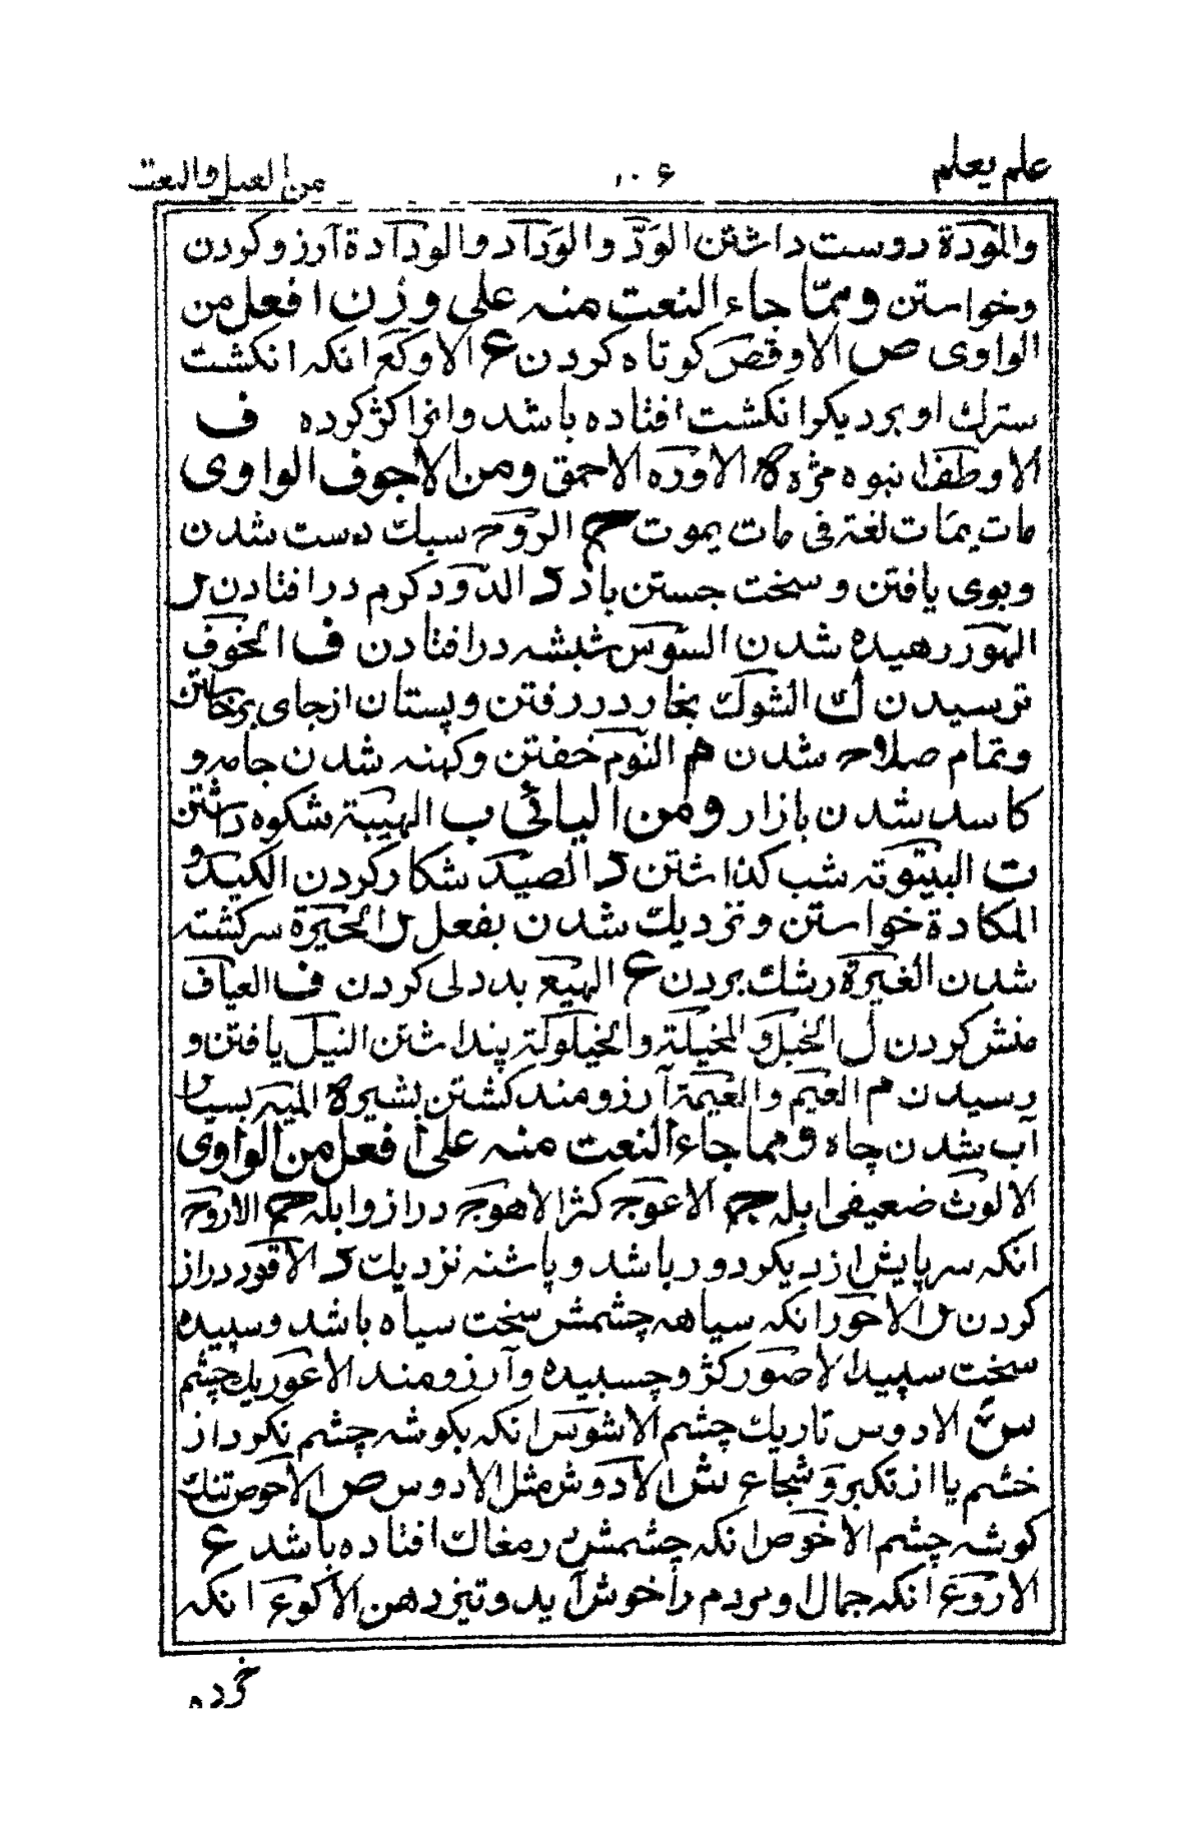 علم يعلم ۱۰۶ من العمل والنعت
والمودة دوست داشتن الودّ والوداد والودادة آرزو کردن
وخواستن وممّا جاء النعت منه على وزن افعل من
الواوى ص الاوقص کوتاه کردن ع الاوکع انکه انکشت
سترك او بر ديکر انکشت افتاده باشد وانرا کژ کرده ف
الاوطف انبوه مژه ه الاوره الاحمق ومن الاجوف الواوى
مات يمات لغة فى مات يموت ح الروح سبك دست شدن
وبوى يافتن وسخت جستن باد د الدود کرم در افتادن ر
الهور رهيده شدن السوس شبشه در افتادن ف الخوف
ترسيدن ك الشوك بخار در رفتن وپستان از جاى برخاستن
وتمام صلاح شدن م النوم خفتن وکهنه شدن جامه و
کاسد شدن بازار ومن اليائى ب الهيبة شکوه داشتن
ت البيتوته شب کذاشتن د الصيد شکار کردن الکيد و
المکادة خواستن ونزديك شدن بفعل ر الحيرة سرکشته
شدن الغيرة رشك بردن ع الهيع بددلى کردن ف العياف
منش کردن ل الخيل والمخيلة والخيلولة پنداشتن النيل يافتن و
رسيدن م العيم والعيمة آرزومند کشتن بشير ه الميه بسيار
آب شدن چاه ومما جاء النعت منه على افعل من الواوى
الالوث ضعيف ابله ج الاعوج کژ الاهوج دراز وابله ح الاروح
انکه سر پايش از ديکر دور باشد وپاشنه نزديك د الاقود دراز
کردن ر الاحور انکه سياهه چشمش سخت سياه باشد وسپيده
سخت سپيد الاصور کژ وچسبيده وآرزومند الاعور يك چشم
س الادوس تاريك چشم الاشوس انکه بکوشه چشم نکرد از
خشم يا از تکبر وشجاع ش الادوش مثل الادوس ص الاحوص تنك
کوشه چشم الاخوص انکه چشمش در مغاك افتاده باشد ع
الاروع انکه جمال او مردم را خوش آيد وتيز دهن الاکوع انکه
خرده